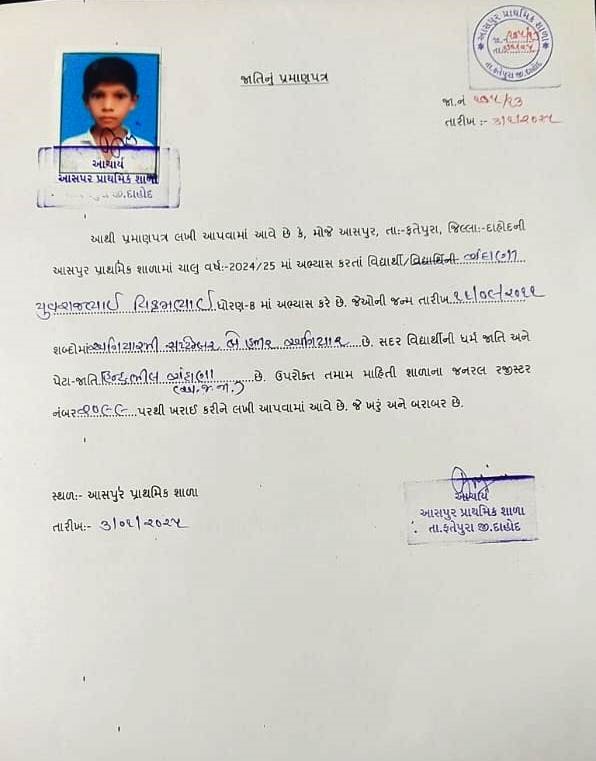 આસપુર પ્રાથમિક શાળા
તા.ફતેપુરા જી.દાહોદ
જાતિનું પ્રમાણપત્ર
જા.નં ૨૩૫/૨૩
તારીખ :- ૩/૬/૨૦૨૫
આચાર્ય
આસપુર પ્રાથમિક શાળા
જી.દાહોદ
આથી પ્રમાણપત્ર લખી આપવામાં આવે છે કે, મોજે આસપુર, તા:-ફતેપુરા, જિલ્લા:-દાહોદની
આસપુર પ્રાથમિક શાળામાં ચાલુ વર્ષ:-2024/25 માં અભ્યાસ કરતાં વિદ્યાર્થી/વિદ્યાર્થિની
યુવરાજભાઈ વિક્રમભાઈ ધોરણ-8 માં અભ્યાસ કરે છે. જેઓની જન્મ તારીખ ૧૧/૦૯/૨૦૧૧
શબ્દોમાં અગિયારમી સપ્ટેમ્બર બે હજાર અગિયાર છે. સદર વિદ્યાર્થીની ધર્મ જાતિ અને
પેટા-જાતિ હિન્દુ ભીલ (અ.જ.જા.) છે. ઉપરોક્ત તમામ માહિતી શાળાના જનરલ રજીસ્ટર
નંબર ૨૦૯૯ પરથી ખરાઈ કરીને લખી આપવામાં આવે છે. જે ખરું અને બરાબર છે.
સ્થળ:- આસપુર પ્રાથમિક શાળા
તારીખ:- ૩/૦૬/૨૦૨૫
આચાર્ય
આસપુર પ્રાથમિક શાળા
તા.ફતેપુરા જી.દાહોદ